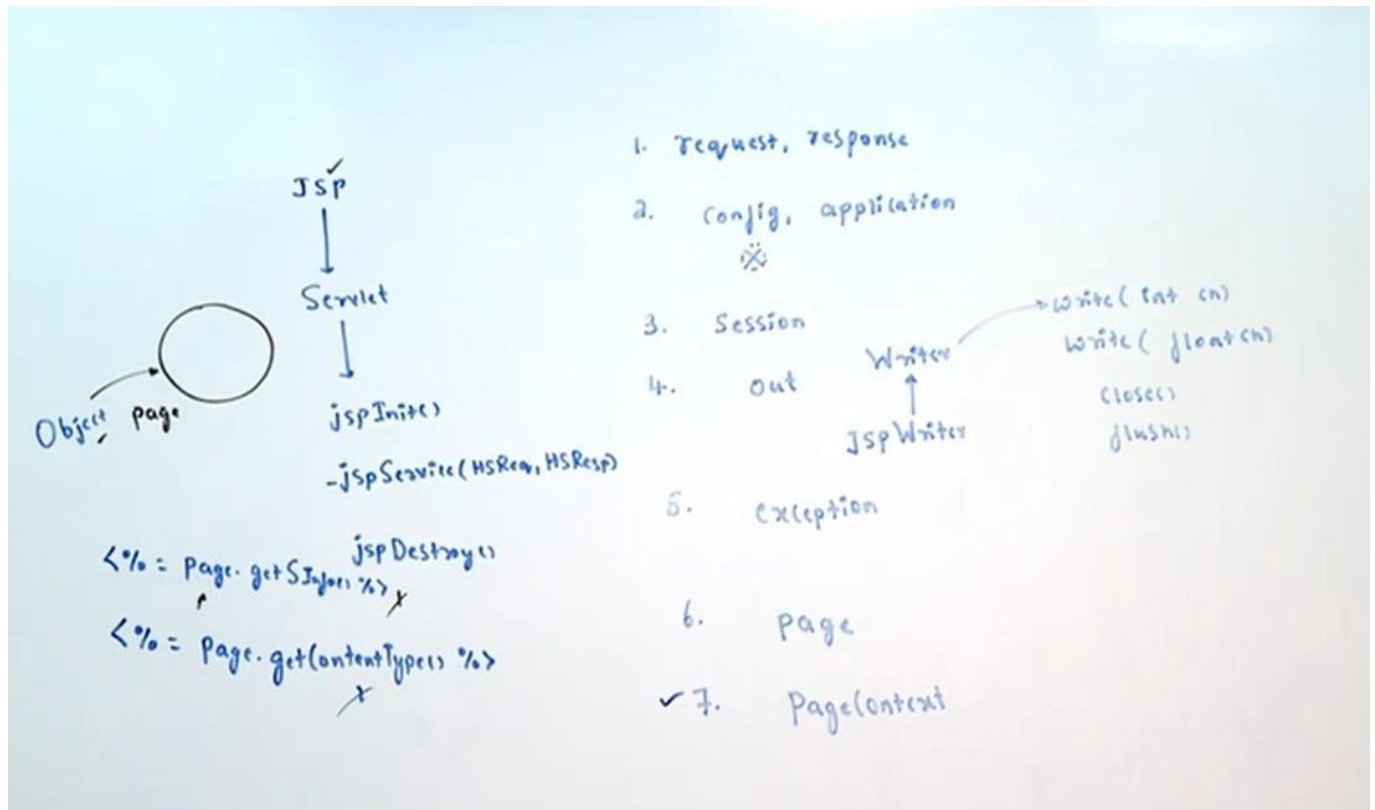 JSP
Servlet
Object page
jspInit()
-jspService(HSReq, HSResp)
jspDestroy()
<%= page.getSInfo() %>
<%= page.getContentType() %>
1. request, response
2. config, application
3. Session
4. out
Writer
JspWriter
write( int ch)
write( float ch)
close()
flush()
5. exception
6. page
7. PageContext